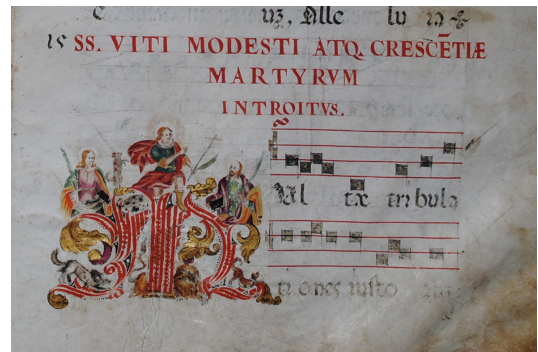 uz, Alle lu
15 SS. VITI MODESTI ATQ. CRESCĒTIÆ
MARTYRVM
INTROITVS.
M Vl tæ tribula
ti ones iusto